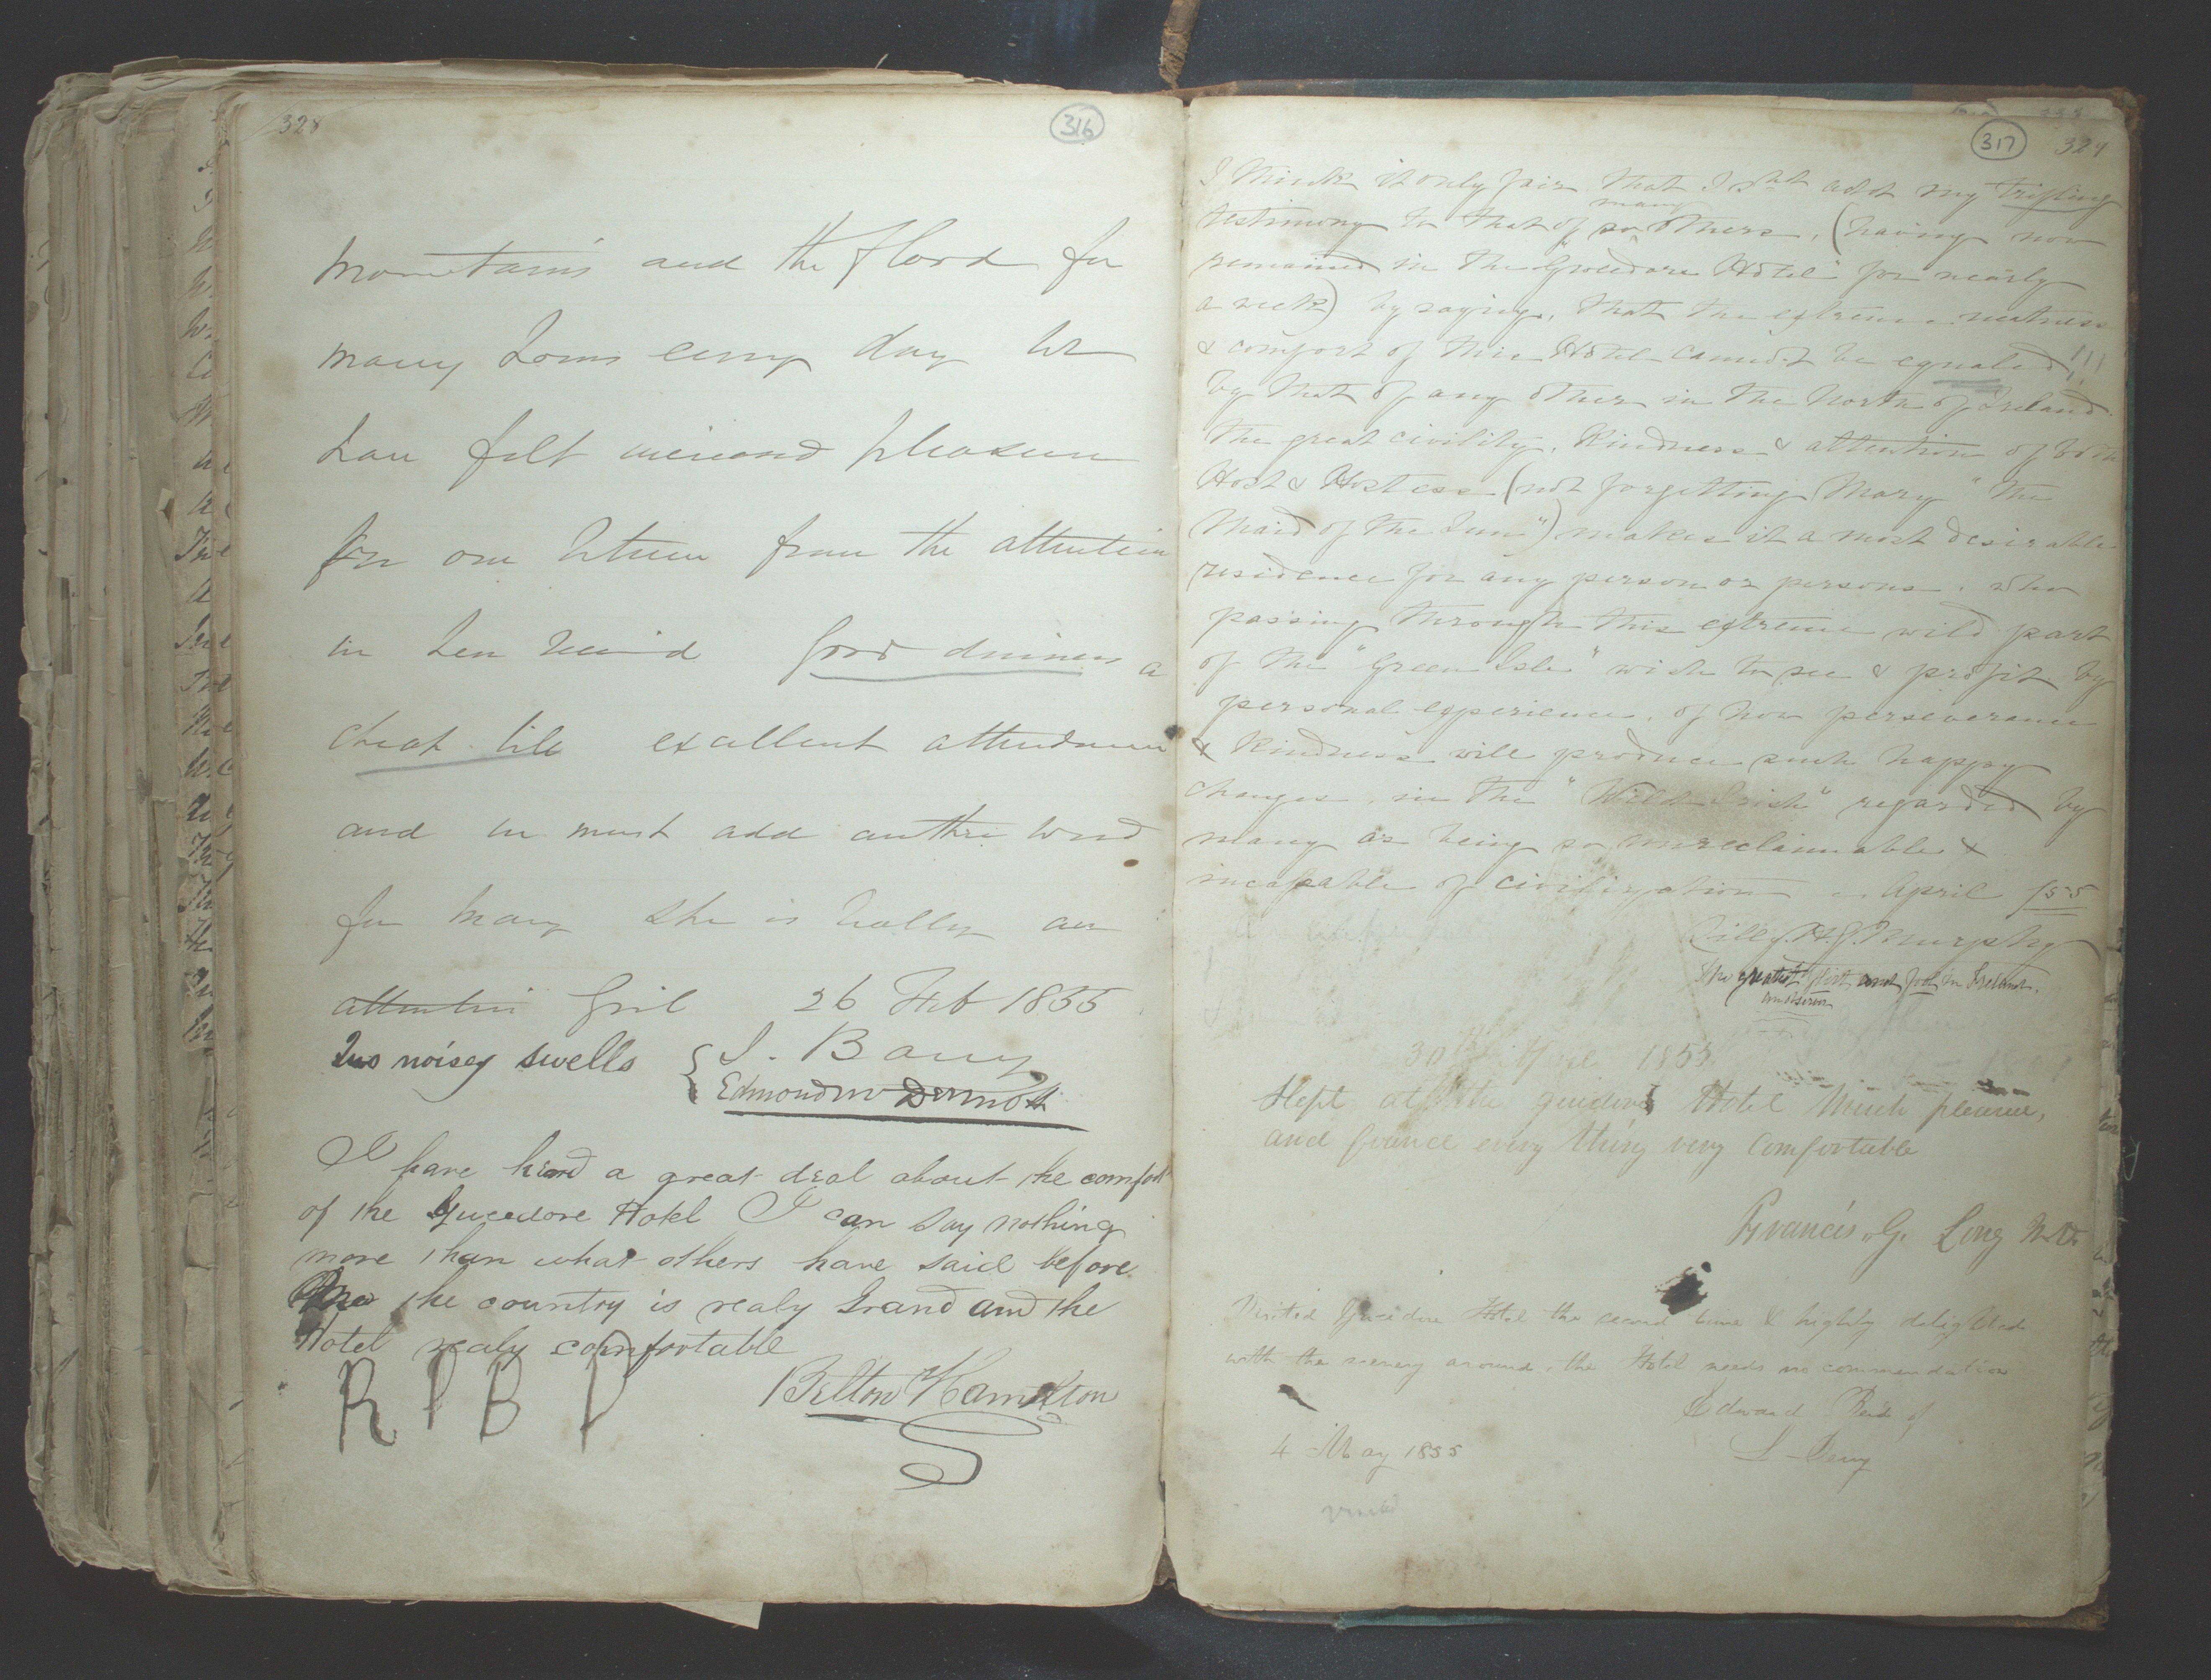 328
316
mountains and the flood for
many hours every day we
have felt increased pleasure
for our return from the attention
in den Recind Good dinners a
cheap bill excellent attendance
and we must add another word
for Mary she is really an
attentive Girl 26 Feb 1855
Two noisey swells { J. Barry
Edmond McDermott
I have heard a great deal about the comfort
of the Gueedore Hotel I can say nothing
more than what others have said before
the country is realy Grand and the
Hotel realy comfortable
Belton Hamilton
R P B P
317
329
I think it only fair that I shd add my trifling
testimony to that of so many others, (having now
remained in the "Gweedore Hotel" for nearly
a week) by saying, that the extreme neatness
& comfort of this Hotel cannot be equaled!!!
by that of any other in the North of Ireland.
The great civility, Kindness & attention of both
Host & Hostess (not forgetting Mary "the
Maid of the Inn") makes it a most desirable
residence for any person or persons, who
passing through this extreme wild part
of the "Green Isle" wish to see & profit by
personal experience, of how perseverance
& Kindness will produce such happy
changes, in the "Wild Irish" regarded by
many as being so unreclaimable &
incapable of civilization April /55
Willy. H. G. Murphy
The greatest flirt and fool in Ireland.
30th April 1855
Slept at the guidore Hotel Much pleasure,
and found every thing very comfortable
Francis G. Long M.D.
Visited Gweedore Hotel the second time & highly delighted
with the scenery around, the Hotel needs no commendation
Edward Reid of
L-Derry
4 May 1855